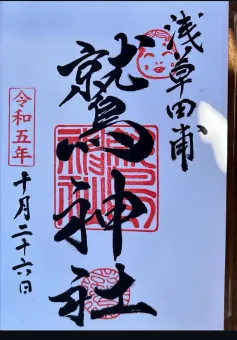 浅草田甫
鷲神社
令和五年
十月二十六日